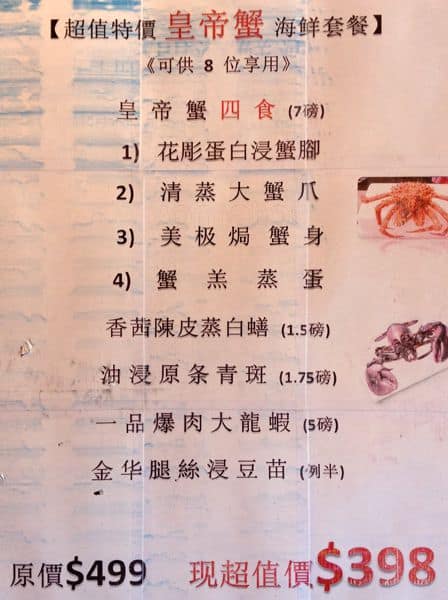 【超值特價 皇帝蟹 海鮮套餐】
《可供 8 位享用》
皇帝蟹四食 (7磅)
1) 花彫蛋白浸蟹腳
2) 清蒸大蟹爪
3) 美极焗蟹身
4) 蟹羔蒸蛋
香茜陳皮蒸白鱔 (1.5磅)
油浸原条青斑 (1.75磅)
一品爆肉大龍蝦 (5磅)
金华腿絲浸豆苗 (例半)
原價$499 现超值價$398